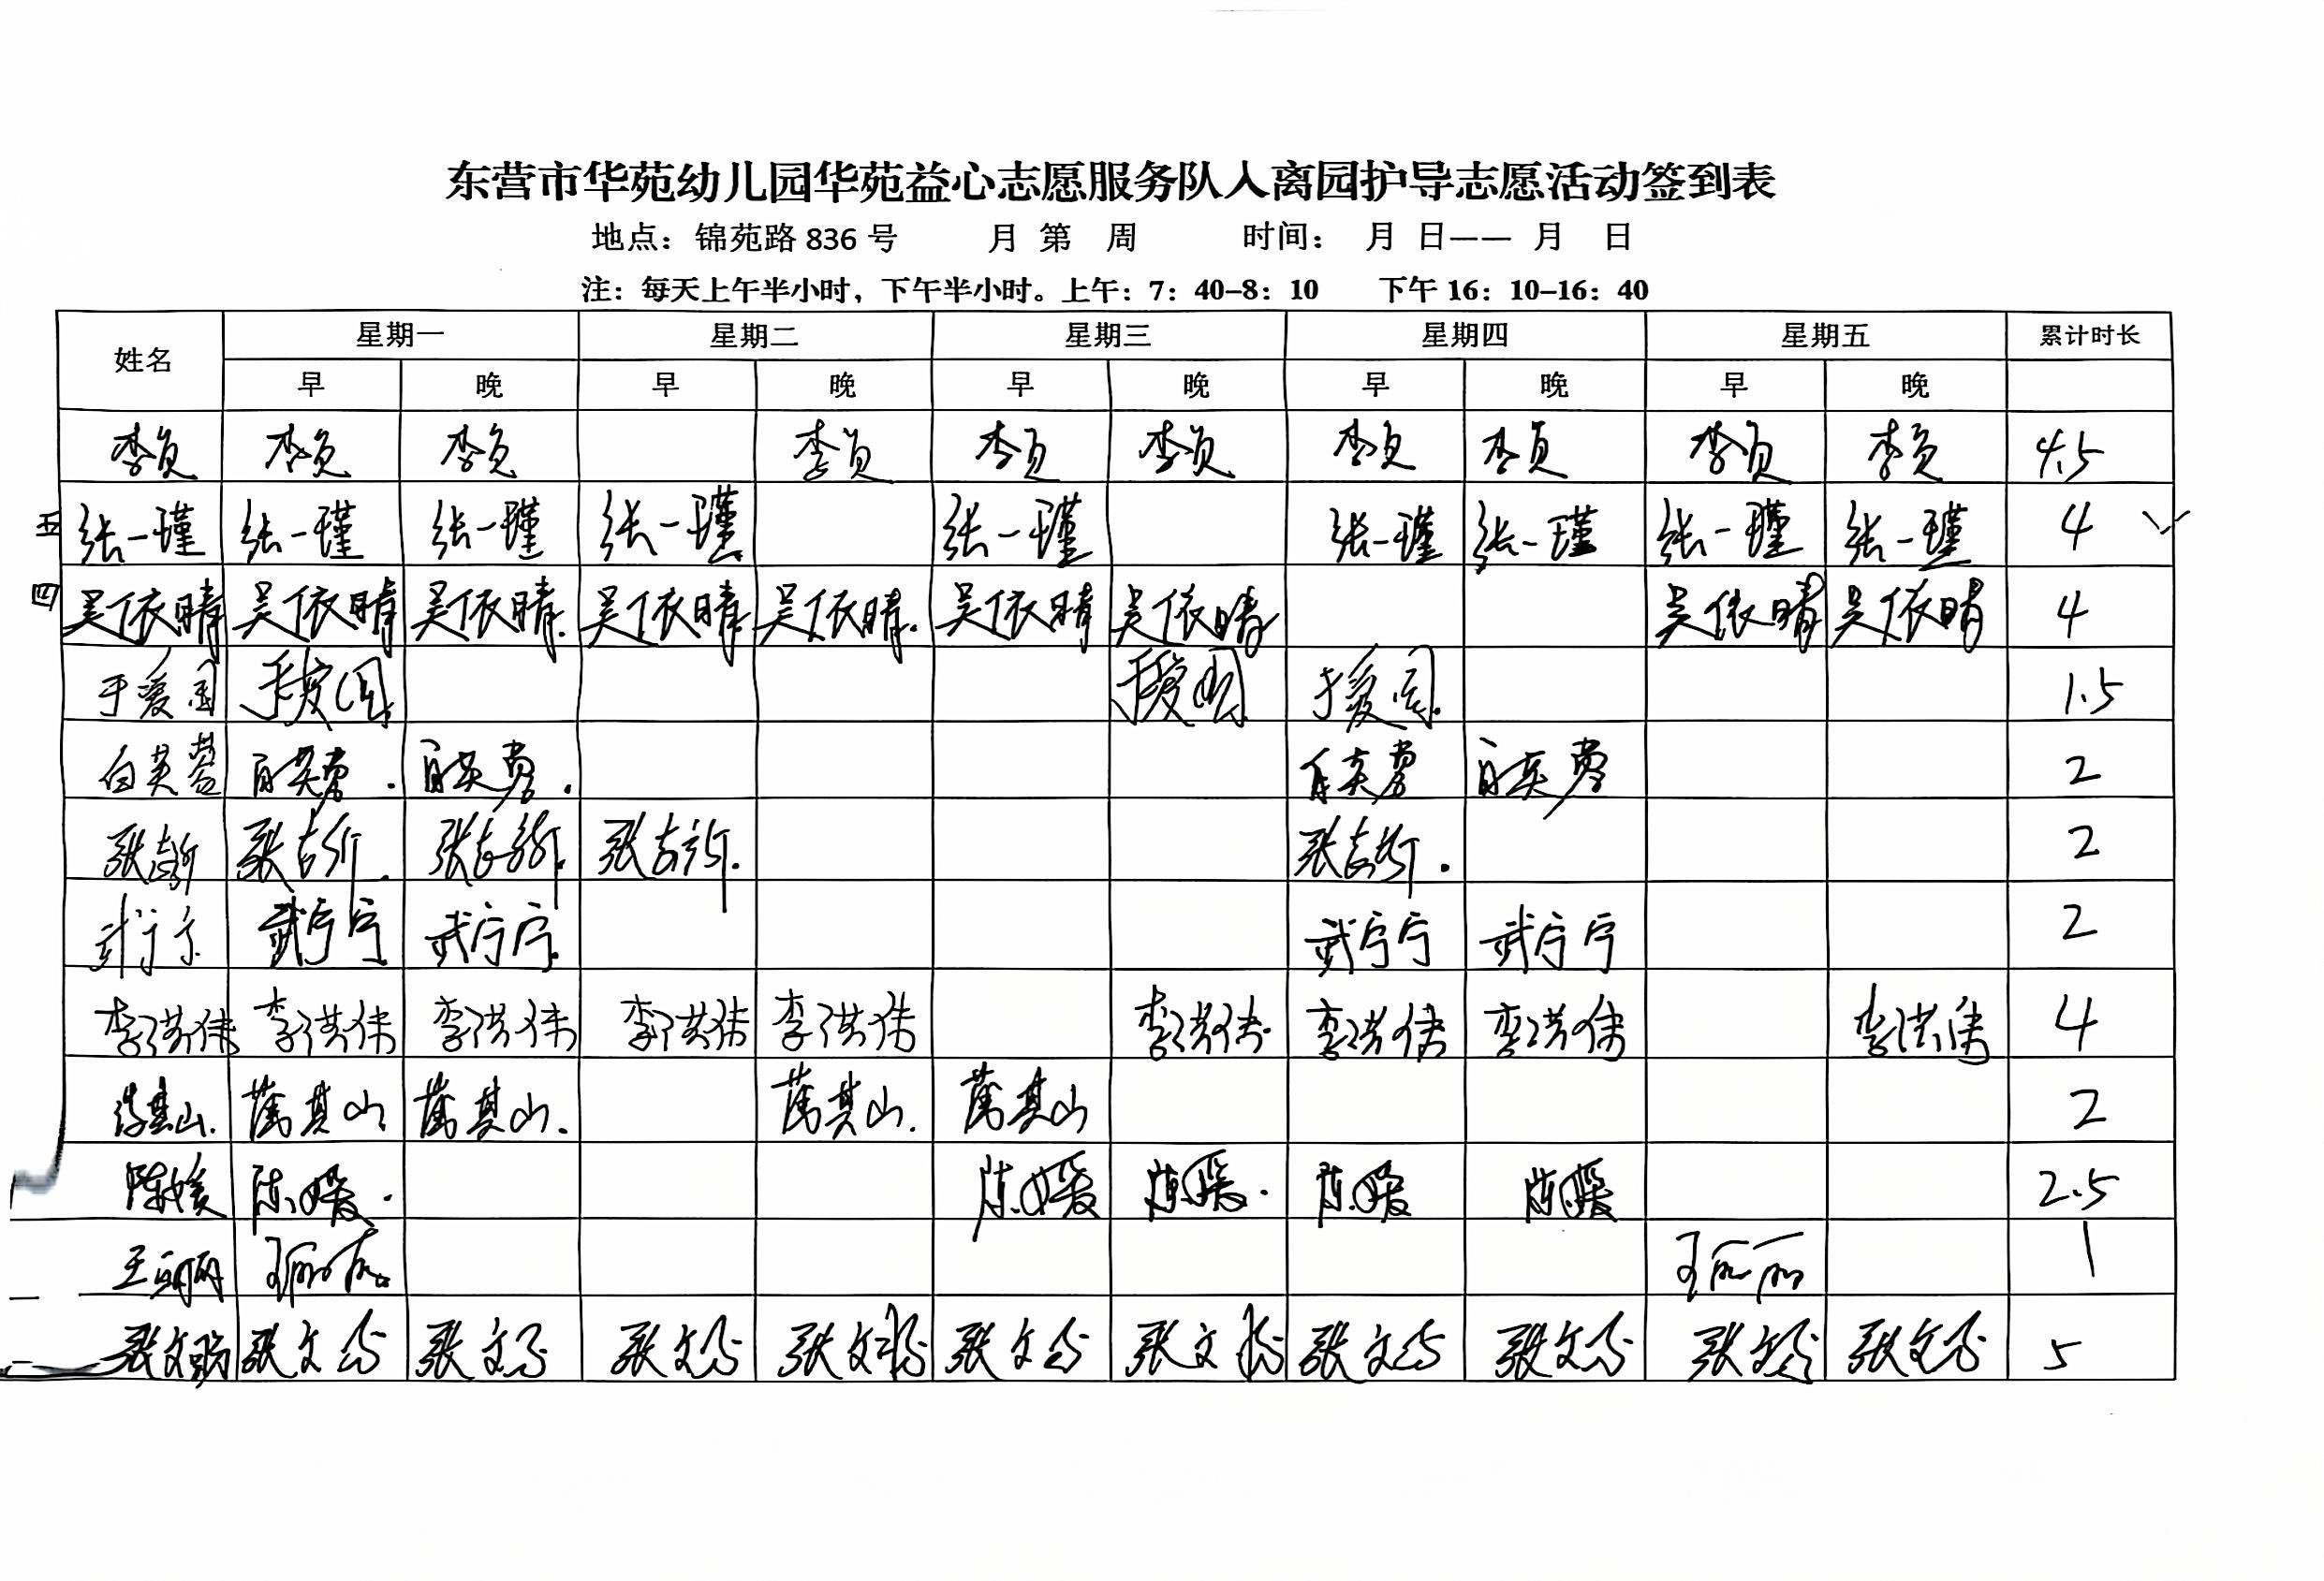 东营市华苑幼儿园华苑益心志愿服务队入离园护导志愿活动签到表
地点：锦苑路 836 号 月 第 周 时间： 月 日—— 月 日
注：每天上午半小时，下午半小时。上午：7：40-8：10 下午 16：10-16：40
姓名 星期一 星期二 星期三 星期四 星期五 累计时长
早 晚 早 晚 早 晚 早 晚 早 晚
李贞 李贞 李贞 李贞 李贞 李贞 李贞 李贞 李贞 李贞 4.5
五 张一瑾 张一瑾 张一瑾 张一瑾 张一瑾 张一瑾 张一瑾 张一瑾 张一瑾 4
四 吴依晴 吴依晴 吴依晴 吴依晴 吴依晴 吴依晴 吴依晴 吴依晴 吴依晴 4
于爱国 于爱国 于爱国 于爱国 1.5
白英 白英 白英 白英 白英 2
张 张 张 张 张 2
武宁宁 武宁宁 武宁宁 武宁宁 武宁宁 2
李洪伟 李洪伟 李洪伟 李洪伟 李洪伟 李洪伟 李洪伟 李洪伟 李洪伟 4
其山 其山 其山 其山 其山 2
陈媛 陈媛 陈媛 陈媛 陈媛 陈媛 2.5
王丽丽 王丽丽 王丽丽 1
张文 张文 张文 张文 张文 张文 张文 张文 张文 张文 张文 5